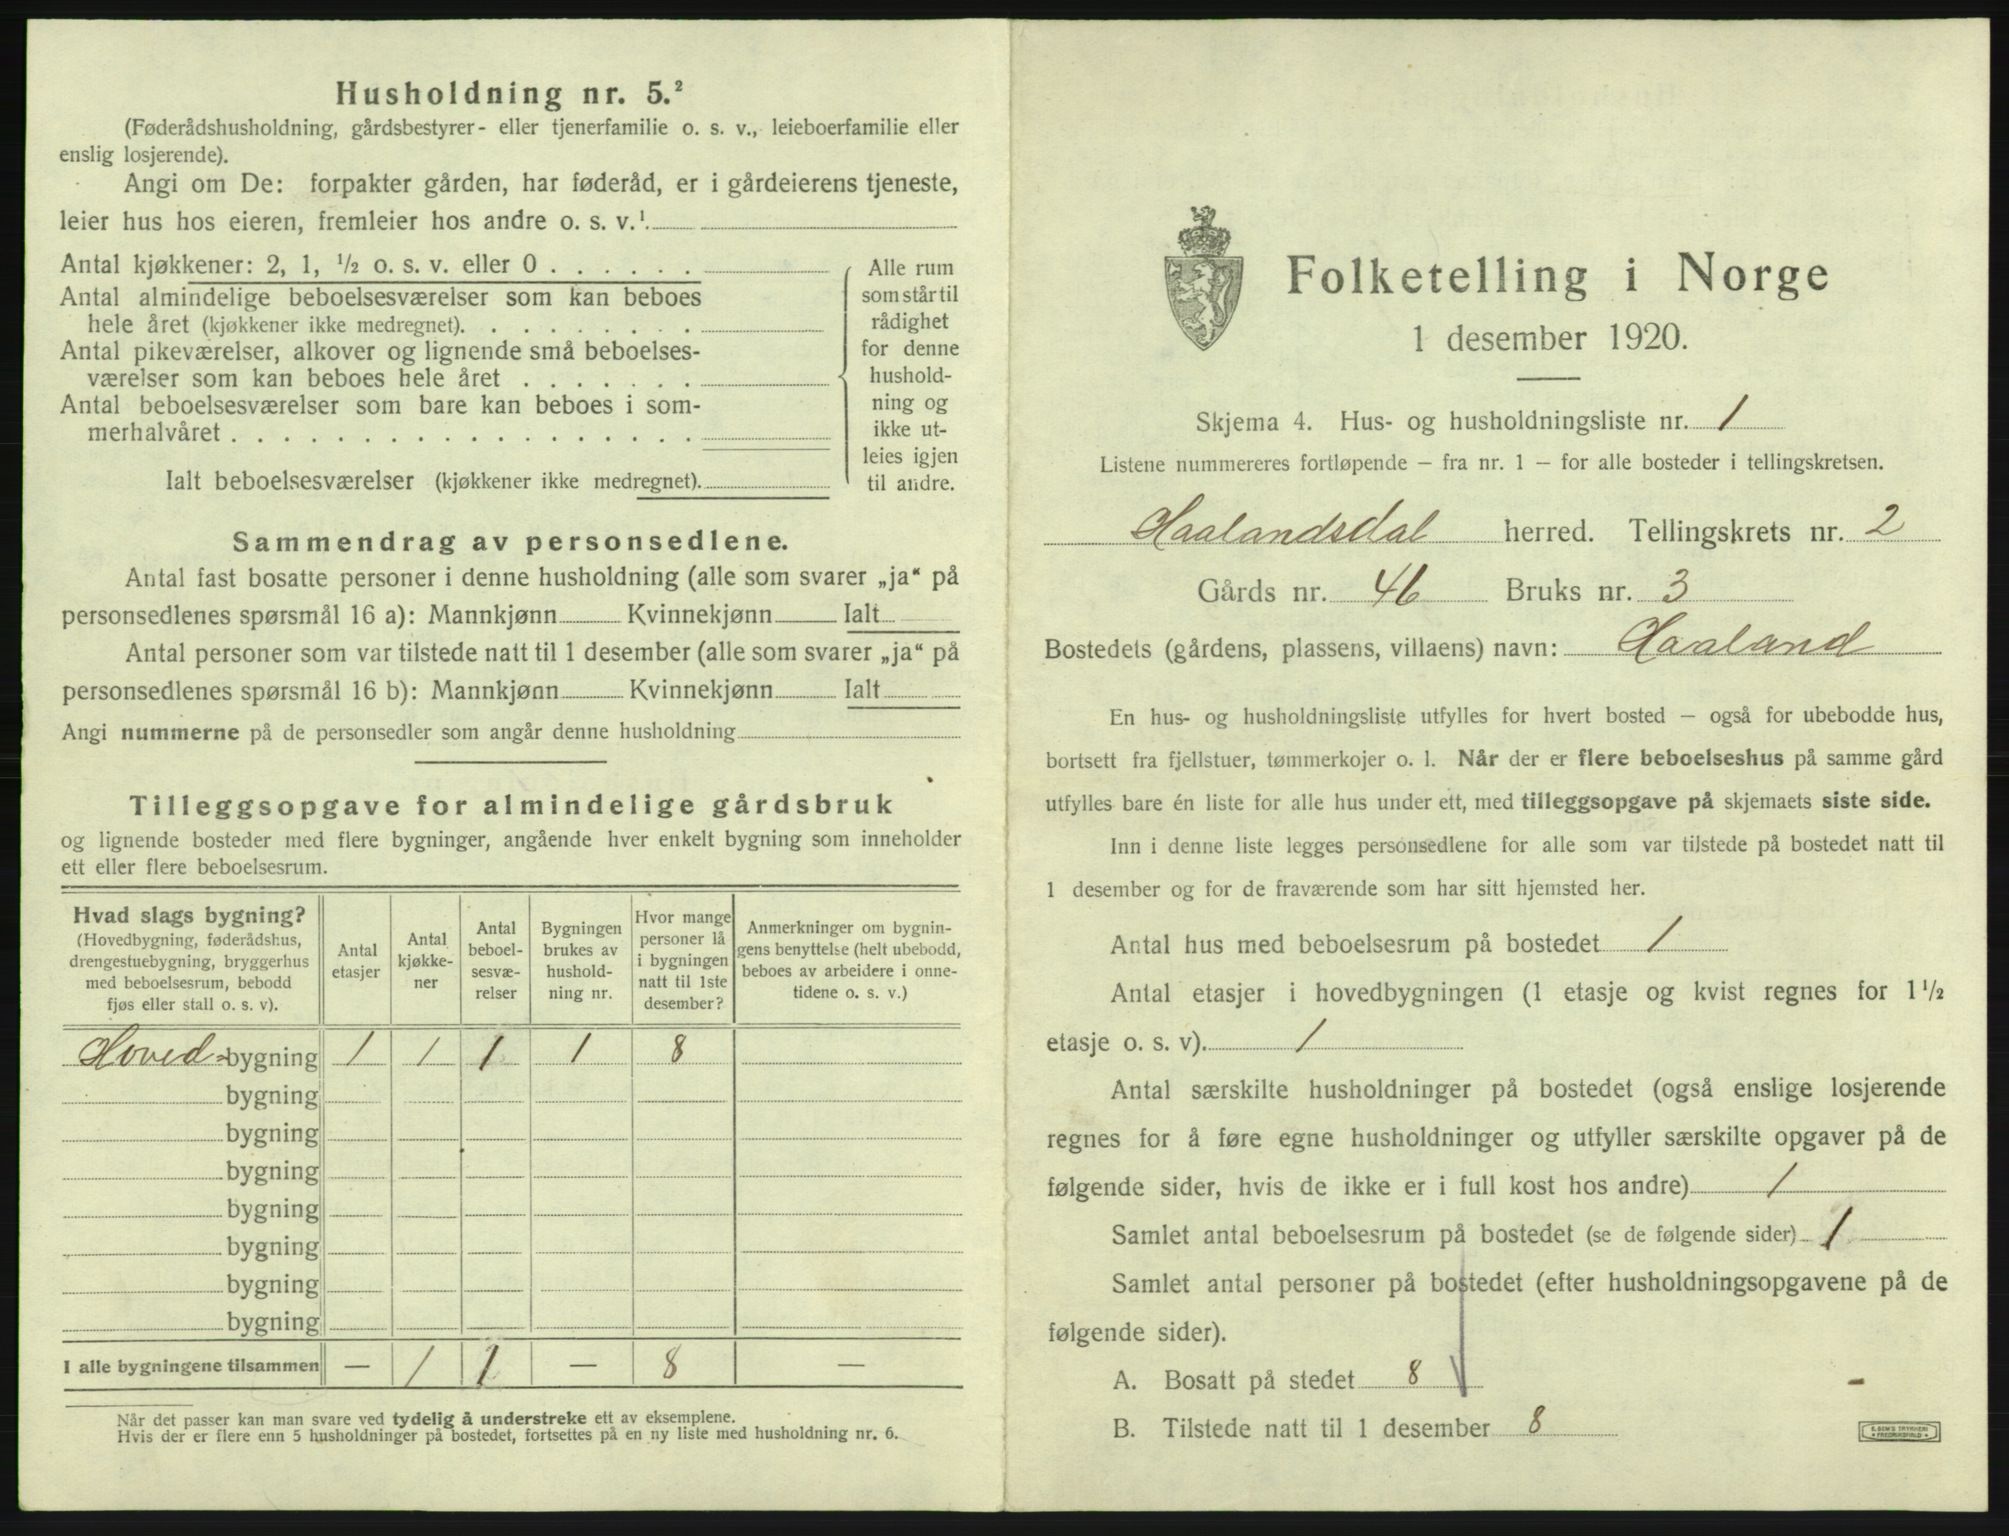 Husholdning nr. 5.²
(Føderådshusholdning, gårdsbestyrer- eller tjenerfamilie o. s. v., leieboerfamilie eller
enslig losjerende).
Angi om De: forpakter gården, har føderåd, er i gårdeierens tjeneste,
leier hus hos eieren, fremleier hos andre o. s. v.¹
Antal kjøkkener: 2, 1, ½ o. s. v. eller 0 . . . . . .
Antal almindelige beboelsesværelser som kan beboes
hele året (kjøkkener ikke medregnet). . . . . . . . .
Antal pikeværelser, alkover og lignende små beboelses-
værelser som kan beboes hele året . . . . . . .
Antal beboelsesværelser som bare kan beboes i som-
merhalvåret . . . . . . . . . . . . . . . . . .
Ialt beboelsesværelser (kjøkkener ikke medregnet).
Alle rum
som står til
rådighet
for denne
hushold-
ning og
ikke ut-
leies igjen
til andre.
Sammendrag av personsedlene.
Antal fast bosatte personer i denne husholdning (alle som svarer „ja“ på
personsedlenes spørsmål 16 a): Mannkjønn Kvinnekjønn Ialt
Antal personer som var tilstede natt til 1 desember (alle som svarer „ja“ på
personsedlenes spørsmål 16 b): Mannkjønn Kvinnekjønn Ialt
Angi nummerne på de personsedler som angår denne husholdning
Tilleggsopgave for almindelige gårdsbruk
og lignende bosteder med flere bygninger, angående hver enkelt bygning som inneholder
ett eller flere beboelsesrum.
Hvad slags bygning?
(Hovedbygning, føderådshus,
drengestuebygning, bryggerhus
med beboelsesrum, bebodd
fjøs eller stall o. s. v).
Antal
etasjer
Antal
kjøkke-
ner
Antal
beboel-
sesvæ-
relser
Bygningen
brukes av
hushold-
ning nr.
Hvor mange
personer lå
i bygningen
natt til 1ste
desember?
Anmerkninger om bygnin-
gens benyttelse (helt ubebodd,
beboes av arbeidere i onne-
tidene o. s. v.)
Hoved-bygning 1 1 1 1 8
bygning
bygning
bygning
bygning
bygning
bygning
bygning
I alle bygningene tilsammen — 1 1 — 8 —
Når det passer kan man svare ved tydelig å understreke ett av eksemplene.
Hvis der er flere enn 5 husholdninger på bostedet, fortsettes på en ny liste med husholdning nr. 6.
Folketelling i Norge
1 desember 1920.
Skjema 4. Hus- og husholdningsliste nr. 1
Listene nummereres fortløpende – fra nr. 1 – for alle bosteder i tellingskretsen.
Haalandsdal herred. Tellingskrets nr. 2
Gårds nr. 46 Bruks nr. 3
Bostedets (gårdens, plassens, villaens) navn: Haaland
En hus- og husholdningsliste utfylles for hvert bosted – også for ubebodde hus,
bortsett fra fjellstuer, tømmerkojer o. l. Når der er flere beboelseshus på samme gård
utfylles bare én liste for alle hus under ett, med tilleggsopgave på skjemaets siste side.
Inn i denne liste legges personsedlene for alle som var tilstede på bostedet natt til
1 desember og for de fraværende som har sitt hjemsted her.
Antal hus med beboelsesrum på bostedet 1
Antal etasjer i hovedbygningen (1 etasje og kvist regnes for 1½
etasje o. s. v). 1
Antal særskilte husholdninger på bostedet (også enslige losjerende
regnes for å føre egne husholdninger og utfyller særskilte opgaver på de
følgende sider, hvis de ikke er i full kost hos andre) 1
Samlet antal beboelsesrum på bostedet (se de følgende sider) 1
Samlet antal personer på bostedet (efter husholdningsopgavene på de
følgende sider).
A. Bosatt på stedet 8
B. Tilstede natt til 1 desember 8
E. SEM'S TRYKKERI
FREDRIKSHALD